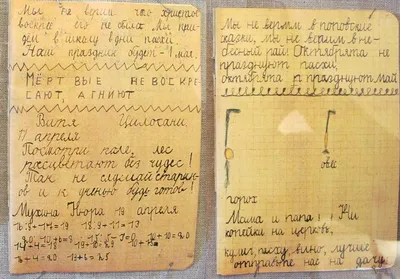 Мы не верим что христос
воскрес его не было. Мы при
дём в школу в дни пасхи.
Наш праздник будет 1 мая.
МЁРТВЫЕ НЕ ВОСКРЕ
САЮТ, А ГНИЮТ
Витя
17 апреля
Посмотри поле, лес
расцветают без чудес!
Так не сделай
и к ученью будь готов!
Мухина Нюра 18 апреля
Мы не верим в поповские
сказки, мы не верим в не-
бесный рай! Октябрята не
празднуют пасхи,
октябрята празднуют май
порох
Мама и папа! Ни
копейки на церковь,
кулич, пасху, вино, лучше
отправьте нас на дачу